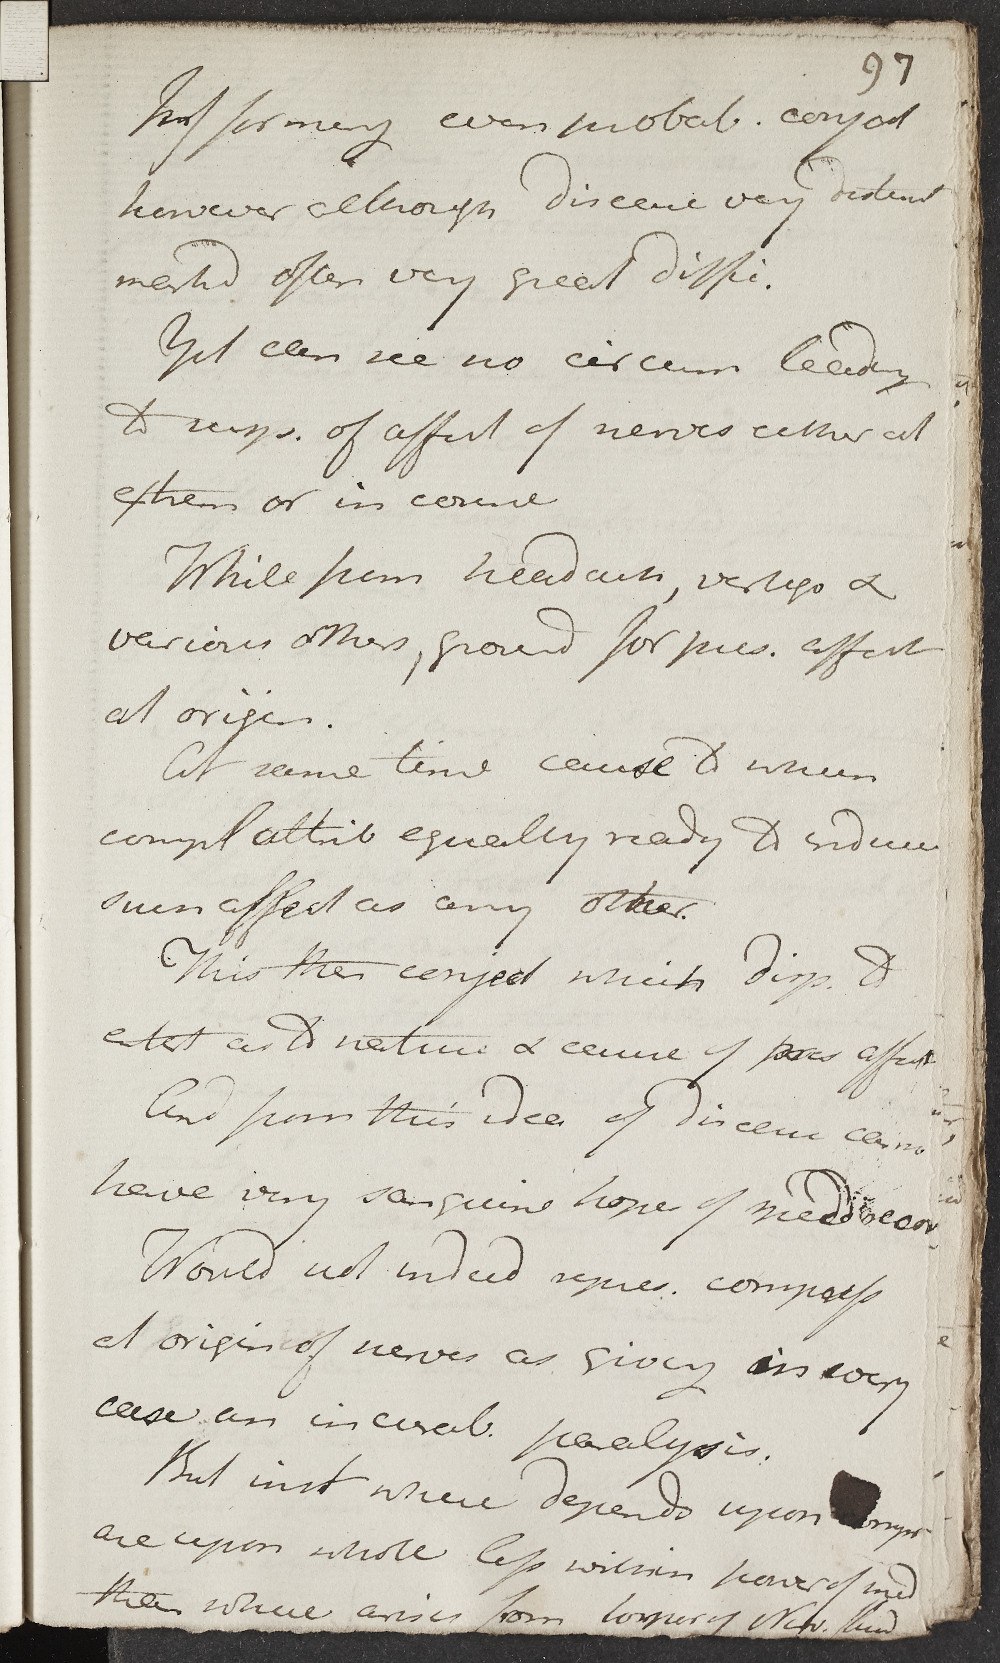 97
for forming even probab. conject
however although disease very distinct
mark'd often very great diffi.
Yet can see no circum leading
to susp. of affect of nerves either at
extrem or in course
While from headach, vertigo &
various others, ground for pres. affect
at origin.
At same time cause to whch
compl attrib equally ready to induce
such affect as any other.
This then conject which disp. to
entert as to nature & cause of pres affect
And from this idea of disease canno
have very sanguine hope of speed recov.
Would not indeed repres. compress
at origin of nerves as giving in every
case an incurab. paralysis.
But inst where depends upon compr
are upon whole less within power of med
than where arises from torpor of Nerv.